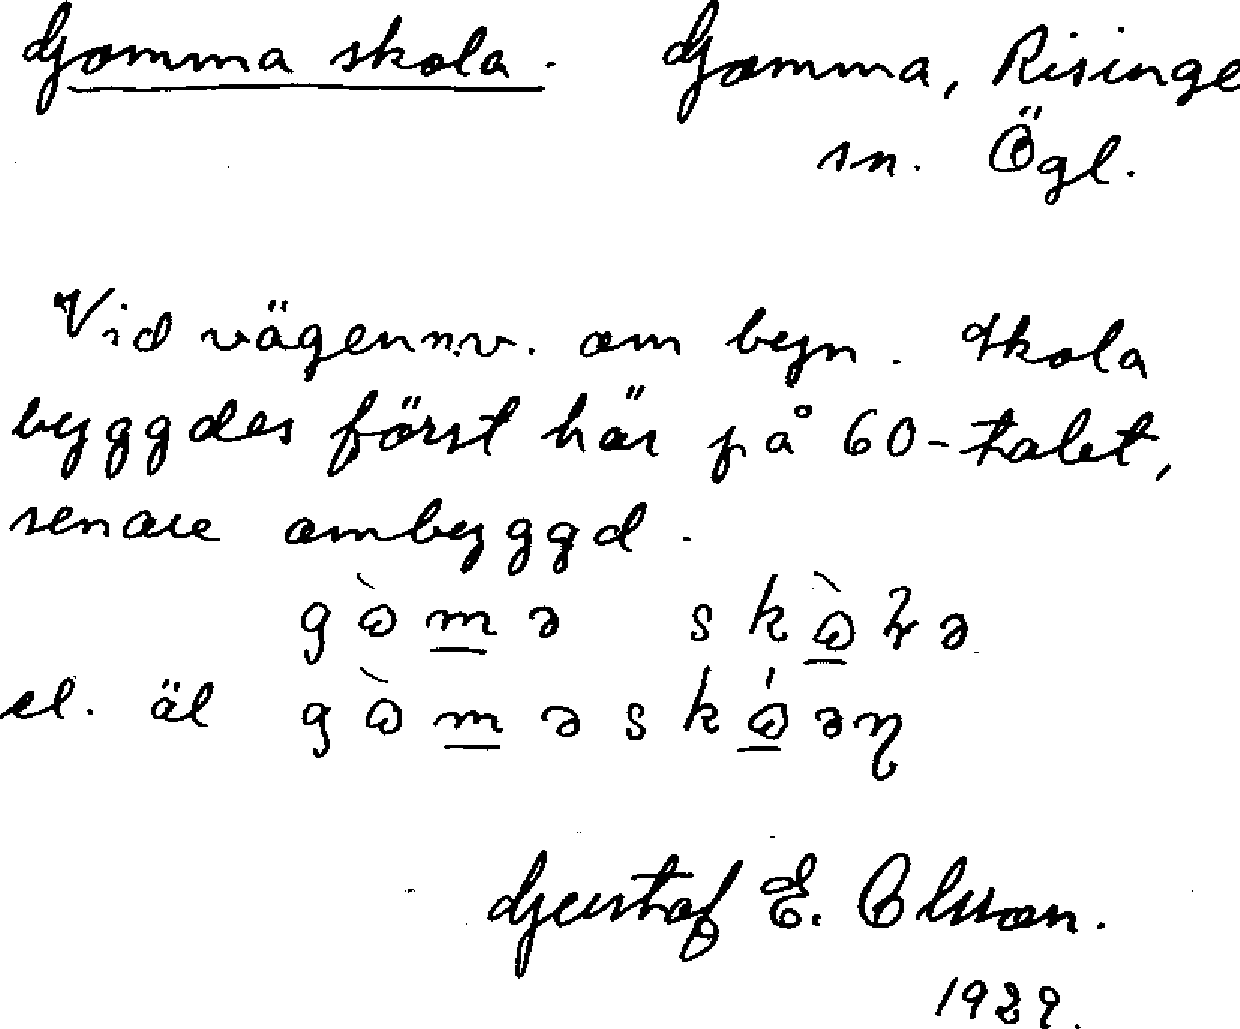 Gomma skola. Gomma, Risinge
sn. Ögl.
Vid vägen nv. om byn. Skola
byggdes först här på 60-talet,
senare ombyggd.
el. äl
Gustaf E. Olsson.
1929.